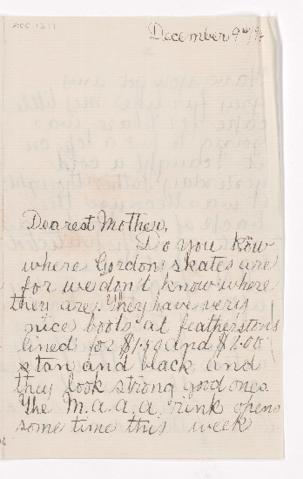 ACC. 1211
December 9th
Dearest Mother,
Do you know
where Gordons skates are
for we don't know where
they are. They have very
nice boots at featherstons
lined for $1.50 and $2.00
stan and black and
they look strong good ones.
The M.a.a.a. rink opens
some time this week